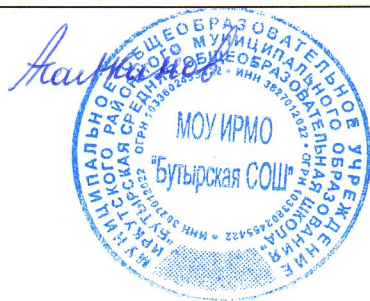 МУНИЦИПАЛЬНОЕ ОБЩЕОБРАЗОВАТЕЛЬНОЕ УЧРЕЖДЕНИЕ
ИРКУТСКОГО РАЙОННОГО МУНИЦИПАЛЬНОГО ОБРАЗОВАНИЯ
"БУТЫРСКАЯ СРЕДНЯЯ ОБЩЕОБРАЗОВАТЕЛЬНАЯ ШКОЛА"
ИНН 3827012022 • ОГРН 1033802455422 • ИНН 3827012022 • ОГРН 1033802455422
МОУ ИРМО
"Бутырская СОШ"